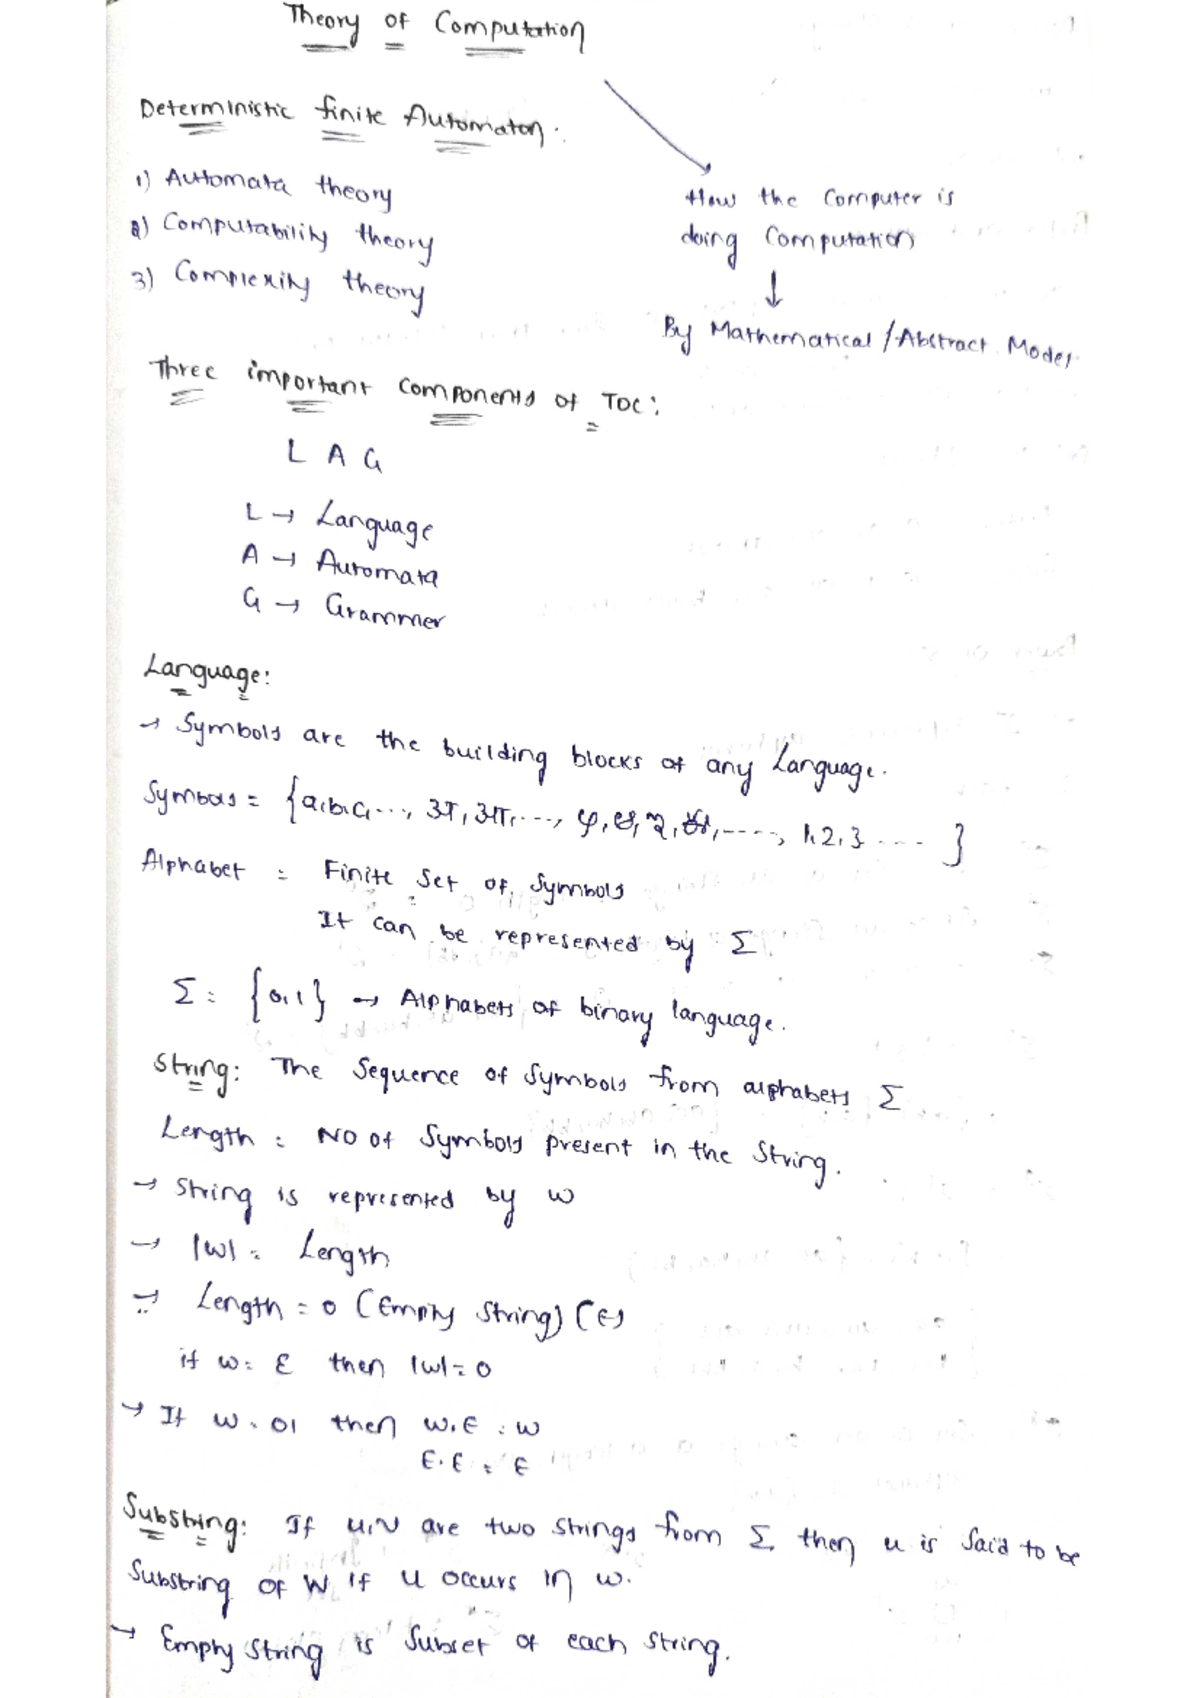 Theory of Computation
Deterministic finite Automaton.
1) Automata theory
2) Computability theory
3) Complexity theory
How the Computer is
doing Computation
↓
By Mathematical / Abstract Model
Three important components of TOC:
L A G
L → Language
A → Automata
G → Grammer
Language:
→ Symbols are the building blocks of any Language.
Symbols = {a,b,c, ..., अ, आ, ..., ..., 1,2,3 .... }
Alphabet = Finite Set of Symbols
It can be represented by Σ
Σ = {0,1} → Alphabets of binary language.
String: The Sequence of Symbols from alphabets Σ
Length = NO of Symbols present in the String.
→ String is represented by w
→ |w| = Length
→ Length = 0 (Empty String) (ε)
if w = ε then |w| = 0
→ If w = 01 then w.ε = w
ε.ε = ε
Substring: If u,v are two strings from Σ then u is said to be
Substring of W if u occurs in w.
→ Empty string is subset of each string.